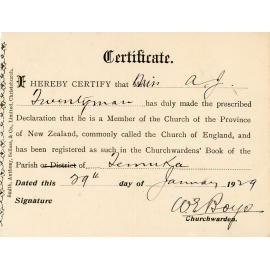 Certificate.
I HEREBY CERTIFY that Miss A. J.
Twentyman has duly made the prescribed
Declaration that he is a Member of the Church of the Province
of New Zealand, commonly called the Church of England, and
has been registered as such in the Churchwardens' Book of the
Parish or District of Temuka
Dated this 29th day of January 1929
Signature W E Boys
Churchwarden.
Smith, Anthony, Sellars & Co., Limited, Christchurch.